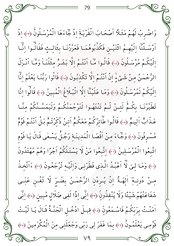 79
وَاضْرِبْ لَهُمْ مَثَلًا أَصْحَابَ الْقَرْيَةِ إِذْ جَاءَهَا الْمُرْسَلُونَ ﴿١٣﴾ إِذْ
أَرْسَلْنَا إِلَيْهِمُ اثْنَيْنِ فَكَذَّبُوهُمَا فَعَزَّزْنَا بِثَالِثٍ فَقَالُوا إِنَّا
إِلَيْكُمْ مُرْسَلُونَ ﴿١٤﴾ قَالُوا مَا أَنْتُمْ إِلَّا بَشَرٌ مِثْلُنَا وَمَا أَنْزَلَ
الرَّحْمَنُ مِنْ شَيْءٍ إِنْ أَنْتُمْ إِلَّا تَكْذِبُونَ ﴿١٥﴾ قَالُوا رَبُّنَا يَعْلَمُ إِنَّا
إِلَيْكُمْ لَمُرْسَلُونَ ﴿١٦﴾ وَمَا عَلَيْنَا إِلَّا الْبَلَاغُ الْمُبِينُ ﴿١٧﴾ قَالُوا إِنَّا
تَطَيَّرْنَا بِكُمْ لَئِنْ لَمْ تَنْتَهُوا لَنَرْجُمَنَّكُمْ وَلَيَمَسَّنَّكُمْ مِنَّا
عَذَابٌ أَلِيمٌ ﴿١٨﴾ قَالُوا طَائِرُكُمْ مَعَكُمْ أَئِنْ ذُكِّرْتُمْ بَلْ أَنْتُمْ قَوْمٌ
مُسْرِفُونَ ﴿١٩﴾ وَجَاءَ مِنْ أَقْصَى الْمَدِينَةِ رَجُلٌ يَسْعَى قَالَ يَا قَوْمِ
اتَّبِعُوا الْمُرْسَلِينَ ﴿٢٠﴾ اتَّبِعُوا مَنْ لَا يَسْأَلُكُمْ أَجْرًا وَهُمْ مُهْتَدُونَ
﴿٢١﴾ وَمَا لِيَ لَا أَعْبُدُ الَّذِي فَطَرَنِي وَإِلَيْهِ تُرْجَعُونَ ﴿٢٢﴾ أَأَتَّخِذُ
مِنْ دُونِهِ آلِهَةً إِنْ يُرِدْنِ الرَّحْمَنُ بِضُرٍّ لَا تُغْنِ عَنِّي
شَفَاعَتُهُمْ شَيْئًا وَلَا يُنْقِذُونِ ﴿٢٣﴾ إِنِّي إِذًا لَفِي ضَلَالٍ مُبِينٍ ﴿٢٤﴾ إِنِّي
آمَنْتُ بِرَبِّكُمْ فَاسْمَعُونِ ﴿٢٥﴾ قِيلَ ادْخُلِ الْجَنَّةَ قَالَ يَا لَيْتَ
قَوْمِي يَعْلَمُونَ ﴿٢٦﴾ بِمَا غَفَرَ لِي رَبِّي وَجَعَلَنِي مِنَ الْمُكْرَمِينَ ﴿٢٧﴾
٧٩